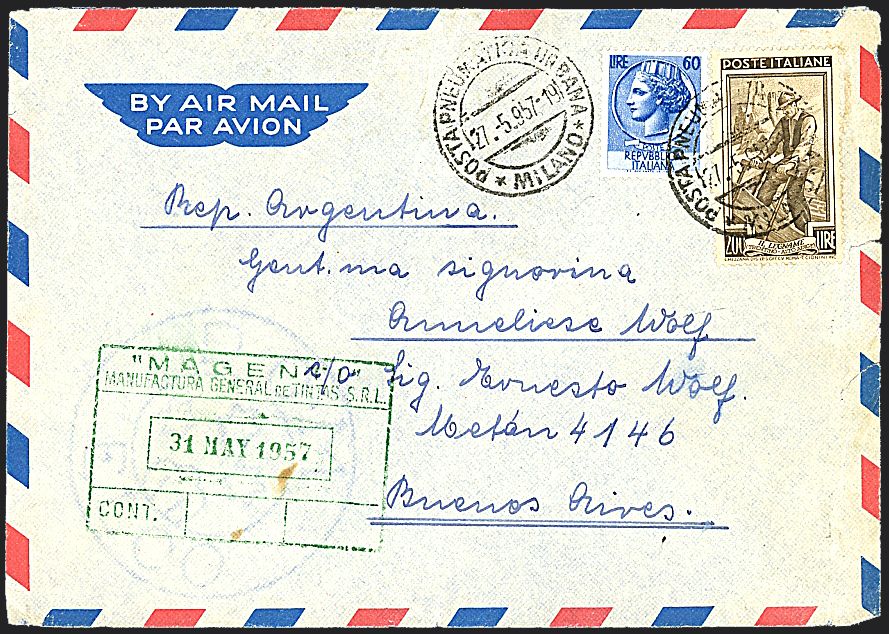 BY AIR MAIL
PAR AVION
★ POSTA PNEUMATICA URBANA ★ MILANO
27.-5.957-19
LIRE 60
POSTE
REPVBBLICA
ITALIANA
POSTE ITALIANE
IL LEGNAME
TRENTINO-ALTO ADIGE
200 LIRE
POSTA PNEUMA
Rep. Argentina.
Gent.ma signorina
Anneliese Wolf
c/o Sig. Ernesto Wolf.
Metán 4146
Buenos Aires.
"MAGENT"
MANUFACTURA GENERAL DE TINTAS S.R.L.
31 MAY 1957
CONT.